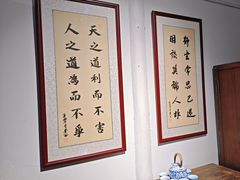 静坐常思己過
閒談莫論人非
天之道利而不害
人之道為而不爭